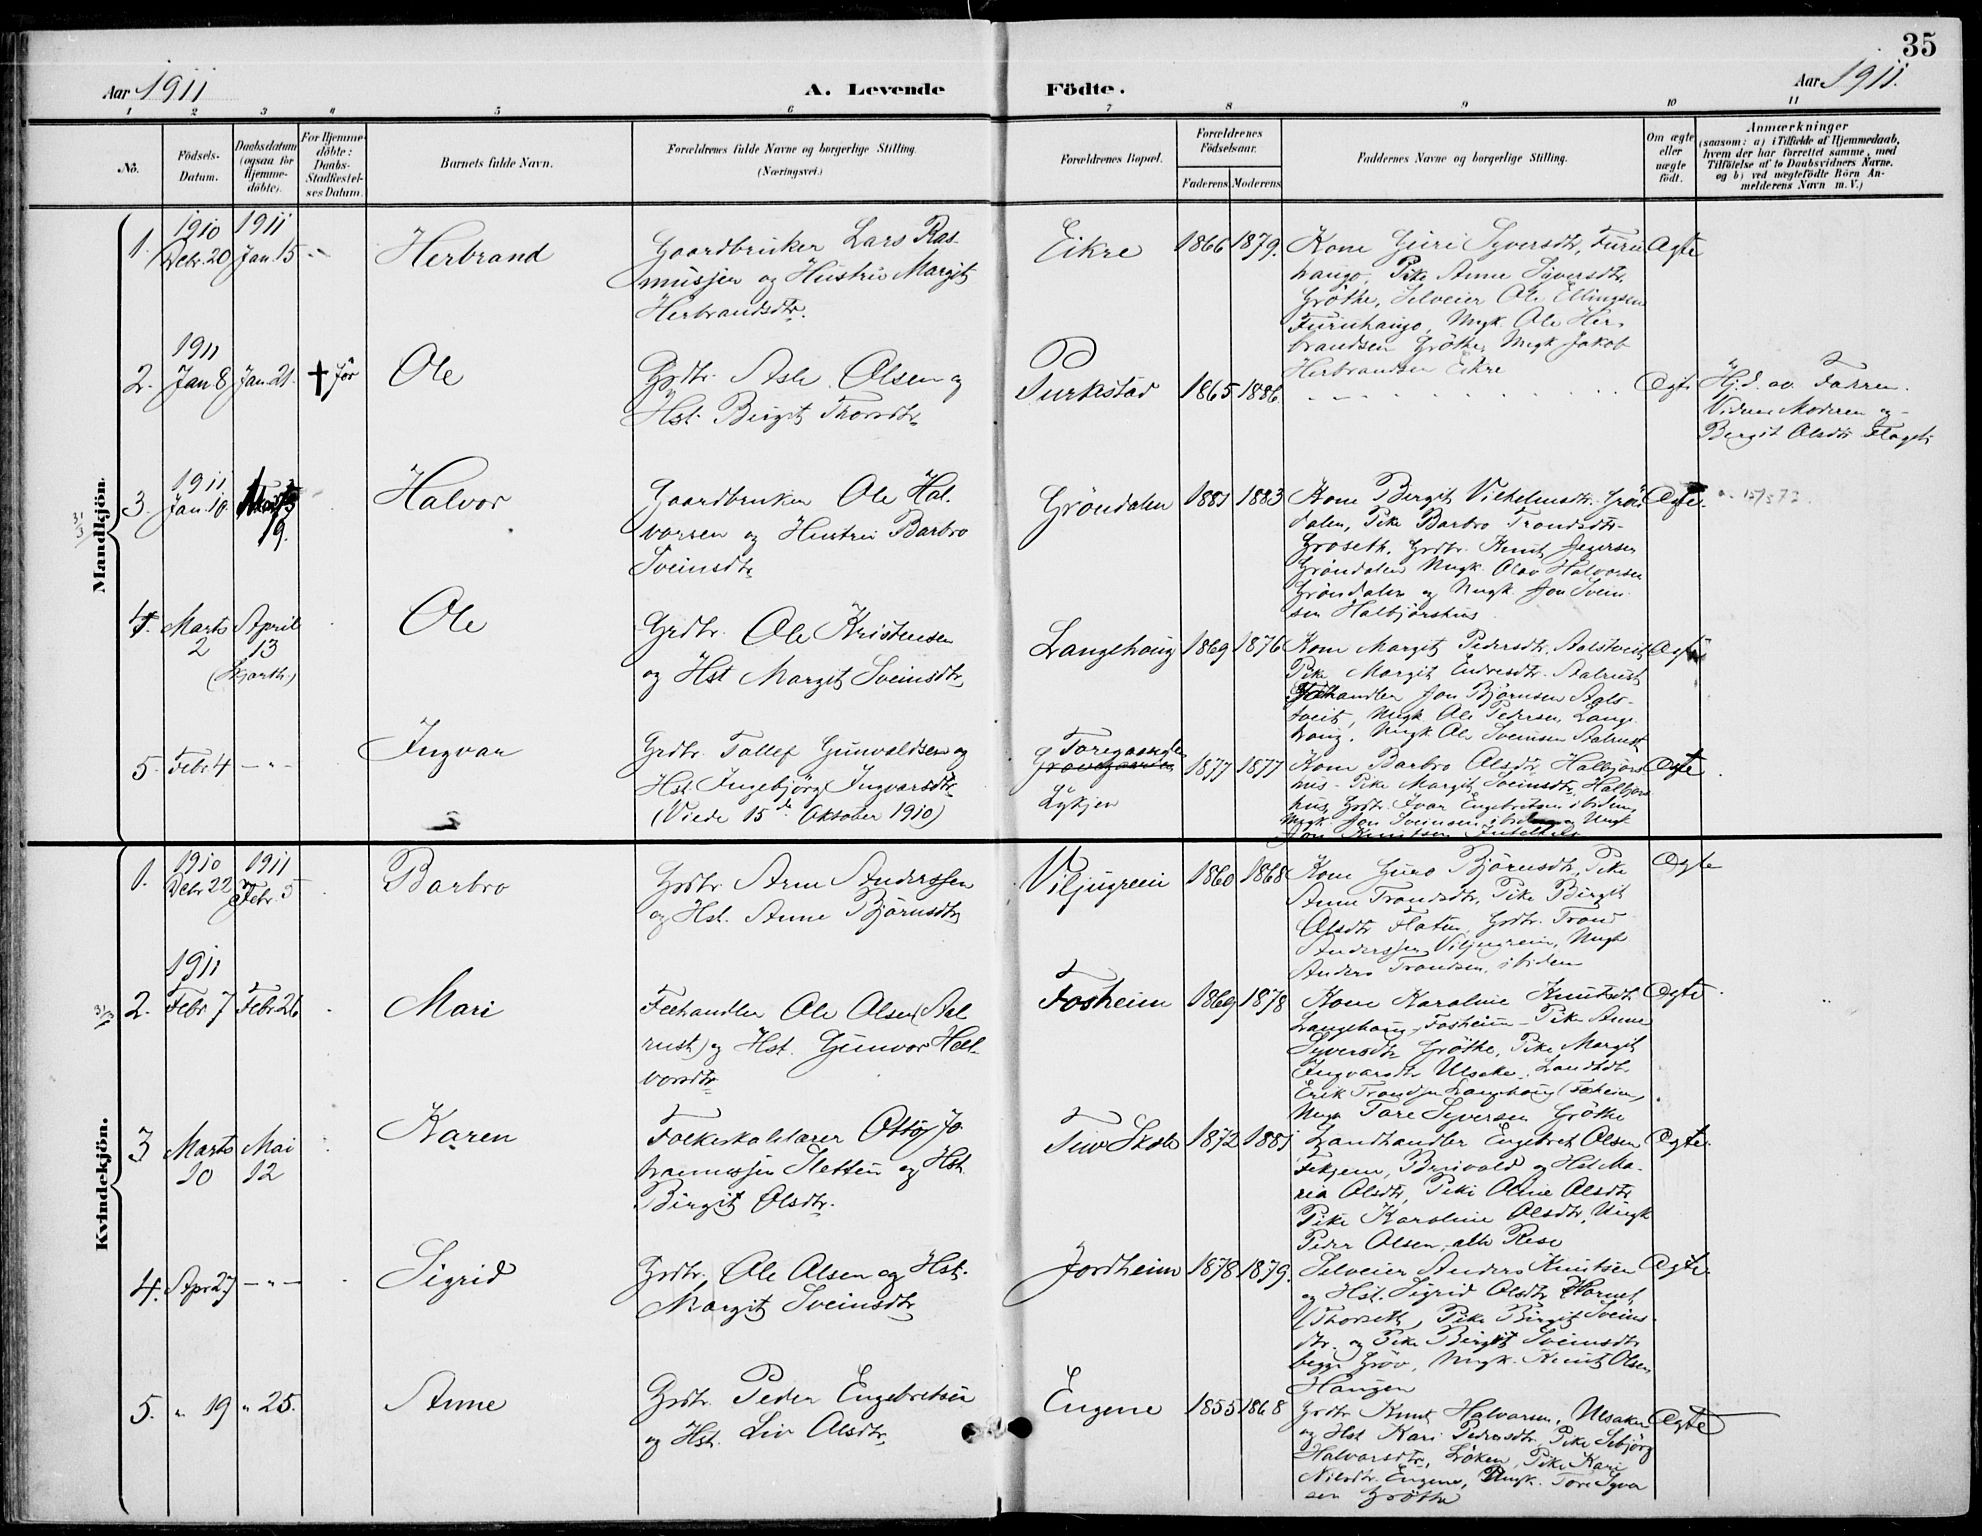 35
Aar 1911
A. Levende Födte.
Aar 1911.
1 2 3 4 5 6 7 8 9 10 11
No.
Födsels-Datum.
Daabsdatum (ogsaa for Hjemme-döbte).
For Hjemme-döbte: Daabs-Stadfæstel-ses Datum.
Barnets fulde Navn.
Forældrenes fulde Navne og borgerlige Stilling. (Næringsvei.)
Forældrenes Bopæl.
Forældrenes Födselsaar.
Faderens Moderens
Faddernes Navne og borgerlige Stilling.
Om ægte eller uægte födt.
Anmærkninger
(saasom: a) i Tilfælde af Hjemmedaab, hvem der har forrettet samme, med Tilföielse af to Daabsvidners Navne. og b) ved uægtefödte Börn An-melderens Navn m. V.)
Mandkjön.
1. 1910 Decbr. 20 1911 Jan. 15 Herbrand
Gaardbruker Lars Ras-
mussen og Hustru Margit
Herbrandsdtr.
Eikre 1866 1879.
Kone Guri Syversdtr, Furu
haugo, Pike Anne Syversdtr,
Gröthe, Selveier Ole Ellingsen
Furuhaugo, Ungk. Ole Her-
brandsen Gröthe, Ungk Jakob
Herbrandsen Eikre
Ægte
2. 1911 Jan 8 Jan. 21. † för Ole
Grdbr. Asle Olsen og
Hst. Birgit Thorsdtr.
1865 1886.
Ægte
Hjd. av Fahren.
Vidner Moderen og
Bergit Olsdtr
3. 1911 Jan. 10. 19. Halvor
Gaardbruker Ole Hal-
vorsen og Hustru Barbro
Sveinsdtr
Gröndalen 1881 1883
Kone Bergit Vilhelmsdtr. Grön
dalen, Pike Barbro Trondsdtr-
Groseth, Grdbr. Knut
Gröndalen Ungk. Olav Halvorsen
Gröndalen og Ungk. Jon Svein-
sen Halbjörshus
Ægte.
4. Marts 2 April 13 Ole
Grdbr. Ole Kristensen
og Hst Margit Sveinsdtr
Langehaug 1869 1876
Kone Margit Pedersdtr.
Pike Margit Endresdtr. Aalrust
Jon Björnsen
Ungk Ole Pedersen, Lange
haug, Ungk Ole Sveinsen Aalrust
Ægte
5. Febr 4 – " – Ingvar
Grdbr. Tollef Gunvaldsen og
Hst. Ingebjörg Ingvarsdtr
(Viede 15de Oktober 1910)
Lykjen
1877 1877
Kone Barbro Olsdtr Halbjörs
hus – Pike Margit Sveinsdtr, Halbjörs
hus, Grdbr. Ivar Engebretsen ibidem,
Ungk. Jon Sveinsen ibidem og Ungk
Ægte
Kvindekjön.
1. 1910 Decbr 22 1911 Febr. 5 Barbro
Grdbr Arne Anderssen
og Hst. Anne Björnsdtr
Viljugrein 1860 1868
Kone Guro Björnsdtr, Pike
Anne Trondsdtr, Pike Birgit
Olsdtr Flaten, Grdbr. Trond
Anderssen Viljugrein, Ungk
Anders Trondsen, ibidem
Ægte
2. 1911 Febr 7 Febr 26 Mari
Feehandler Ole Olsen (Aal
rust) og Hst. Gunvor Hal-
vorsdtr
Fosheim 1869 1878
Kone Karoline Knutsdtr
Langehaug, Fosheim – Pike Anne
Syversdtr Gröthe, Pike Margit
Ingvarsdtr Ulsaker,
Erik Trondsen Langehaug (Fosheim),
Ungk Tore Syversen Gröthe
Ægte
3 Marts 10 Mai 12 Karen
Folkeskolelærer Otto Jo-
hannessen Sletten og Hst.
Birgit Olsdtr.
Tuv Skole 1872 1881
Landhandler Engebret Olsen
og Hst Ma-
ria Olsdtr, Pike Oline Olsdtr
Pike Karoline Olsdtr, Ungk
Peder Olsen, alle
Ægte.
4. Apr 27 – " – Sigrid
Grdbr, Ole Olsen og Hst.
Margit Sveinsdtr
Jordheim 1878 1879.
Selveier Anders Knutsen
og Hst. Sigrid Olsdtr
(Thorset), Pike Birgit Sveins-
dtr. og Pike Birgit Sveinsdtr
begge Gröv, Ungk. Knut Olsen
Haugen
Ægte.
5. " 19 " 25. Anne
Grdbr. Peder Engebretsen
og Hst. Liv Olsdtr.
Engene 1855 1868
Grdbr Knut Halvorsen, Ulsaker
og Hst Kari Pedersdtr. Pike
Halvorsdtr, Löken, Pike Kari
Nilsdtr. Engene, Ungk. Tore Syver
sen Gröthe
Ægte